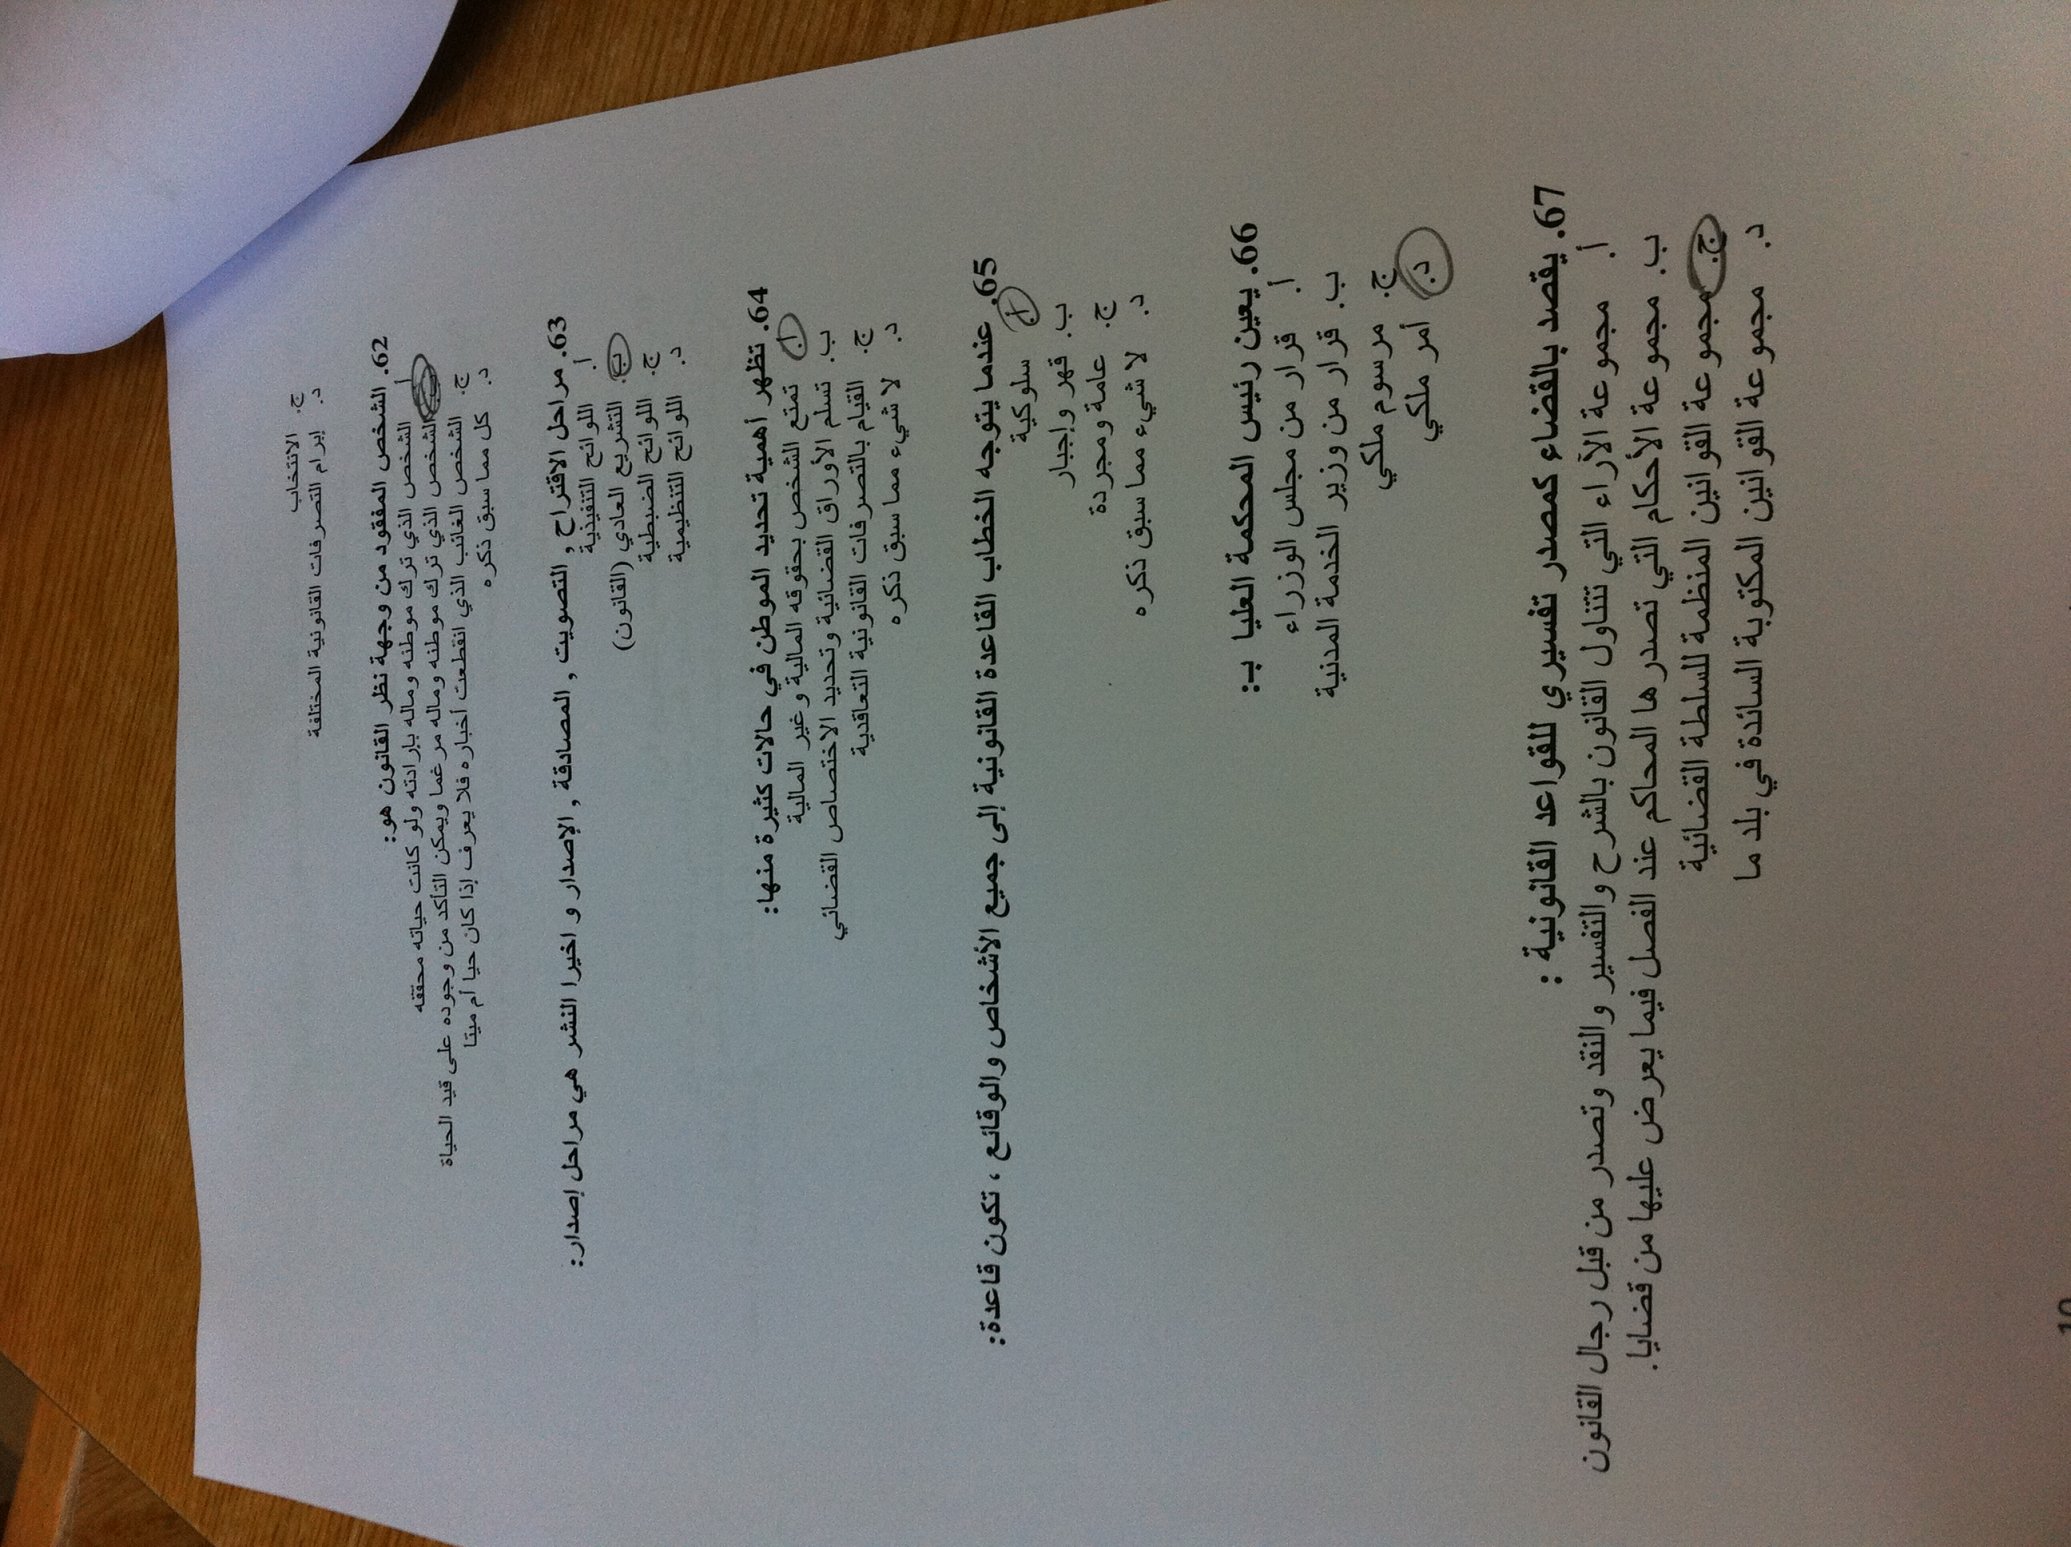 ج. الانتخاب
د. إبرام التصرفات القانونية المختلفة
62. الشخص المفقود من وجهة نظر القانون هو:
أ. الشخص الذي ترك موطنه وماله بإرادته ولو كانت حياته محققه
الشخص الذي ترك موطنه وماله مرغما ويمكن التأكد من وجوده على قيد الحياة
ج. الشخص الغائب الذي انقطعت أخباره فلا يعرف إذا كان حيا أم ميتا
د. كل مما سبق ذكره
63. مراحل الاقتراح , التصويت , المصادقة , الإصدار و اخيرا النشر هي مراحل إصدار:
أ. اللوائح التنفيذية
ب. التشريع العادي (القانون)
ج. اللوائح الضبطية
د. اللوائح التنظيمية
64. تظهر أهمية تحديد الموطن في حالات كثيرة منها:
أ. تمتع الشخص بحقوقه المالية وغير المالية
ب. تسلم الأوراق القضائية وتحديد الاختصاص القضائي
ج. القيام بالتصرفات القانونية التعاقدية
د. لا شيء مما سبق ذكره
65. عندما يتوجه الخطاب القاعدة القانونية إلى جميع الأشخاص والوقائع ، تكون قاعدة:
أ. سلوكية
ب. قهر وإجبار
ج. عامة ومجردة
د. لا شيء مما سبق ذكره
66. يعين رئيس المحكمة العليا ب:
أ. قرار من مجلس الوزراء
ب. قرار من وزير الخدمة المدنية
ج. مرسوم ملكي
د. أمر ملكي
67. يقصد بالقضاء كمصدر تفسيري للقواعد القانونية :
أ. مجموعة الآراء التي تتناول القانون بالشرح والتفسير والنقد وتصدر من قبل رجال القانون
ب. مجموعة الأحكام التي تصدرها المحاكم عند الفصل فيما يعرض عليها من قضايا.
ج. مجموعة القوانين المنظمة للسلطة القضائية
د. مجموعة القوانين المكتوبة السائدة في بلد ما
10